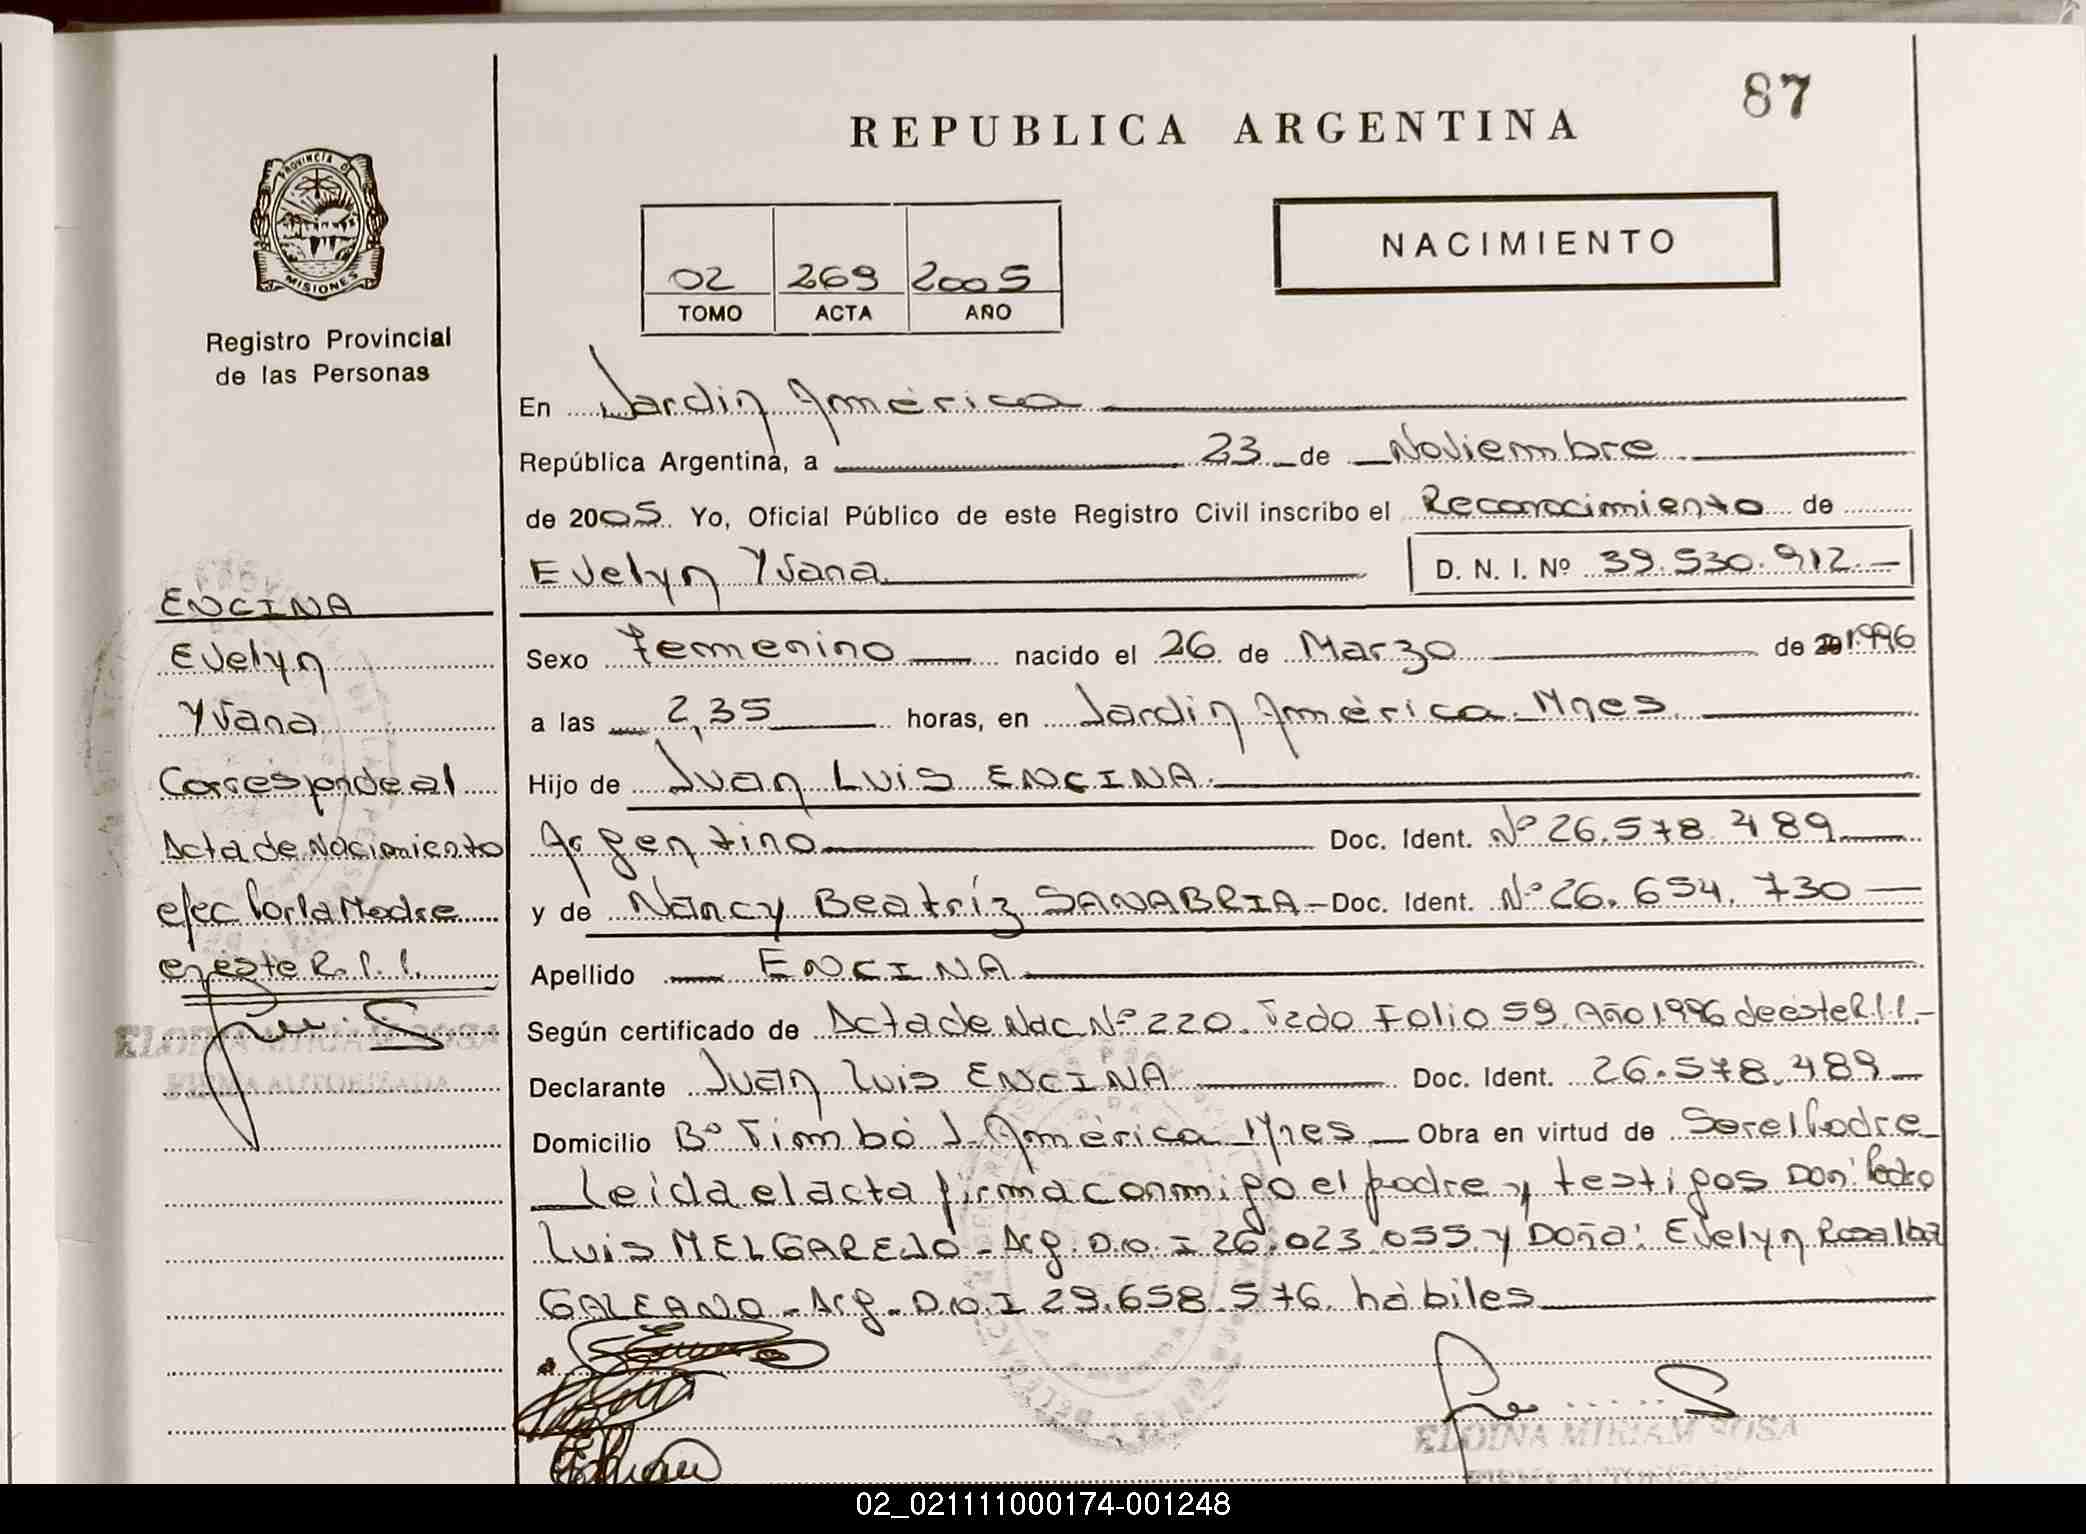 87
REPUBLICA ARGENTINA
PROVINCIA D
MISIONES
Registro Provincial
de las Personas
NACIMIENTO
02 269 2005
TOMO ACTA AÑO
En Jardin América
República Argentina, a 23 de Noviembre
de 2005. Yo, Oficial Público de este Registro Civil inscribo el Reconocimiento de
Evelyn Yvana D. N. I. Nº 39.530.912.-
Sexo Femenino nacido el 26 de Marzo de 1996
a las 2,35 horas, en Jardin América Mnes.
Hijo de Juan Luis ENCINA.
Argentino Doc. Ident. Nº 26.578.489
y de Nancy Beatríz SANABRIA - Doc. Ident. Nº 26.654.730
Apellido ENCINA
Según certificado de Acta de Nac Nº 220. T2do Folio 59. Año 1996 de éste R.P.P.-
Declarante Juan Luis ENCINA Doc. Ident. 26.578.489
Domicilio Bº Timbó J. América Mnes Obra en virtud de Ser el Padre
Leida el acta firma conmigo el padre y testigos Don: Pedro
Luis MELGAREJO - Arg. D.N.I 26.023.055 y Doña: Evelyn Rosalba
GALEANO - Arg - D.N.I 29.658.576. hábiles
ENCINA
Evelyn
Yvana
Corresponde al
Acta de Nacimiento
efec Por la Madre
en éste R.P.P.
ELOINA MIRIAM SOSA
FIRMA AUTORIZADA
ELOINA MIRIAM SOSA
02_021111000174-001248